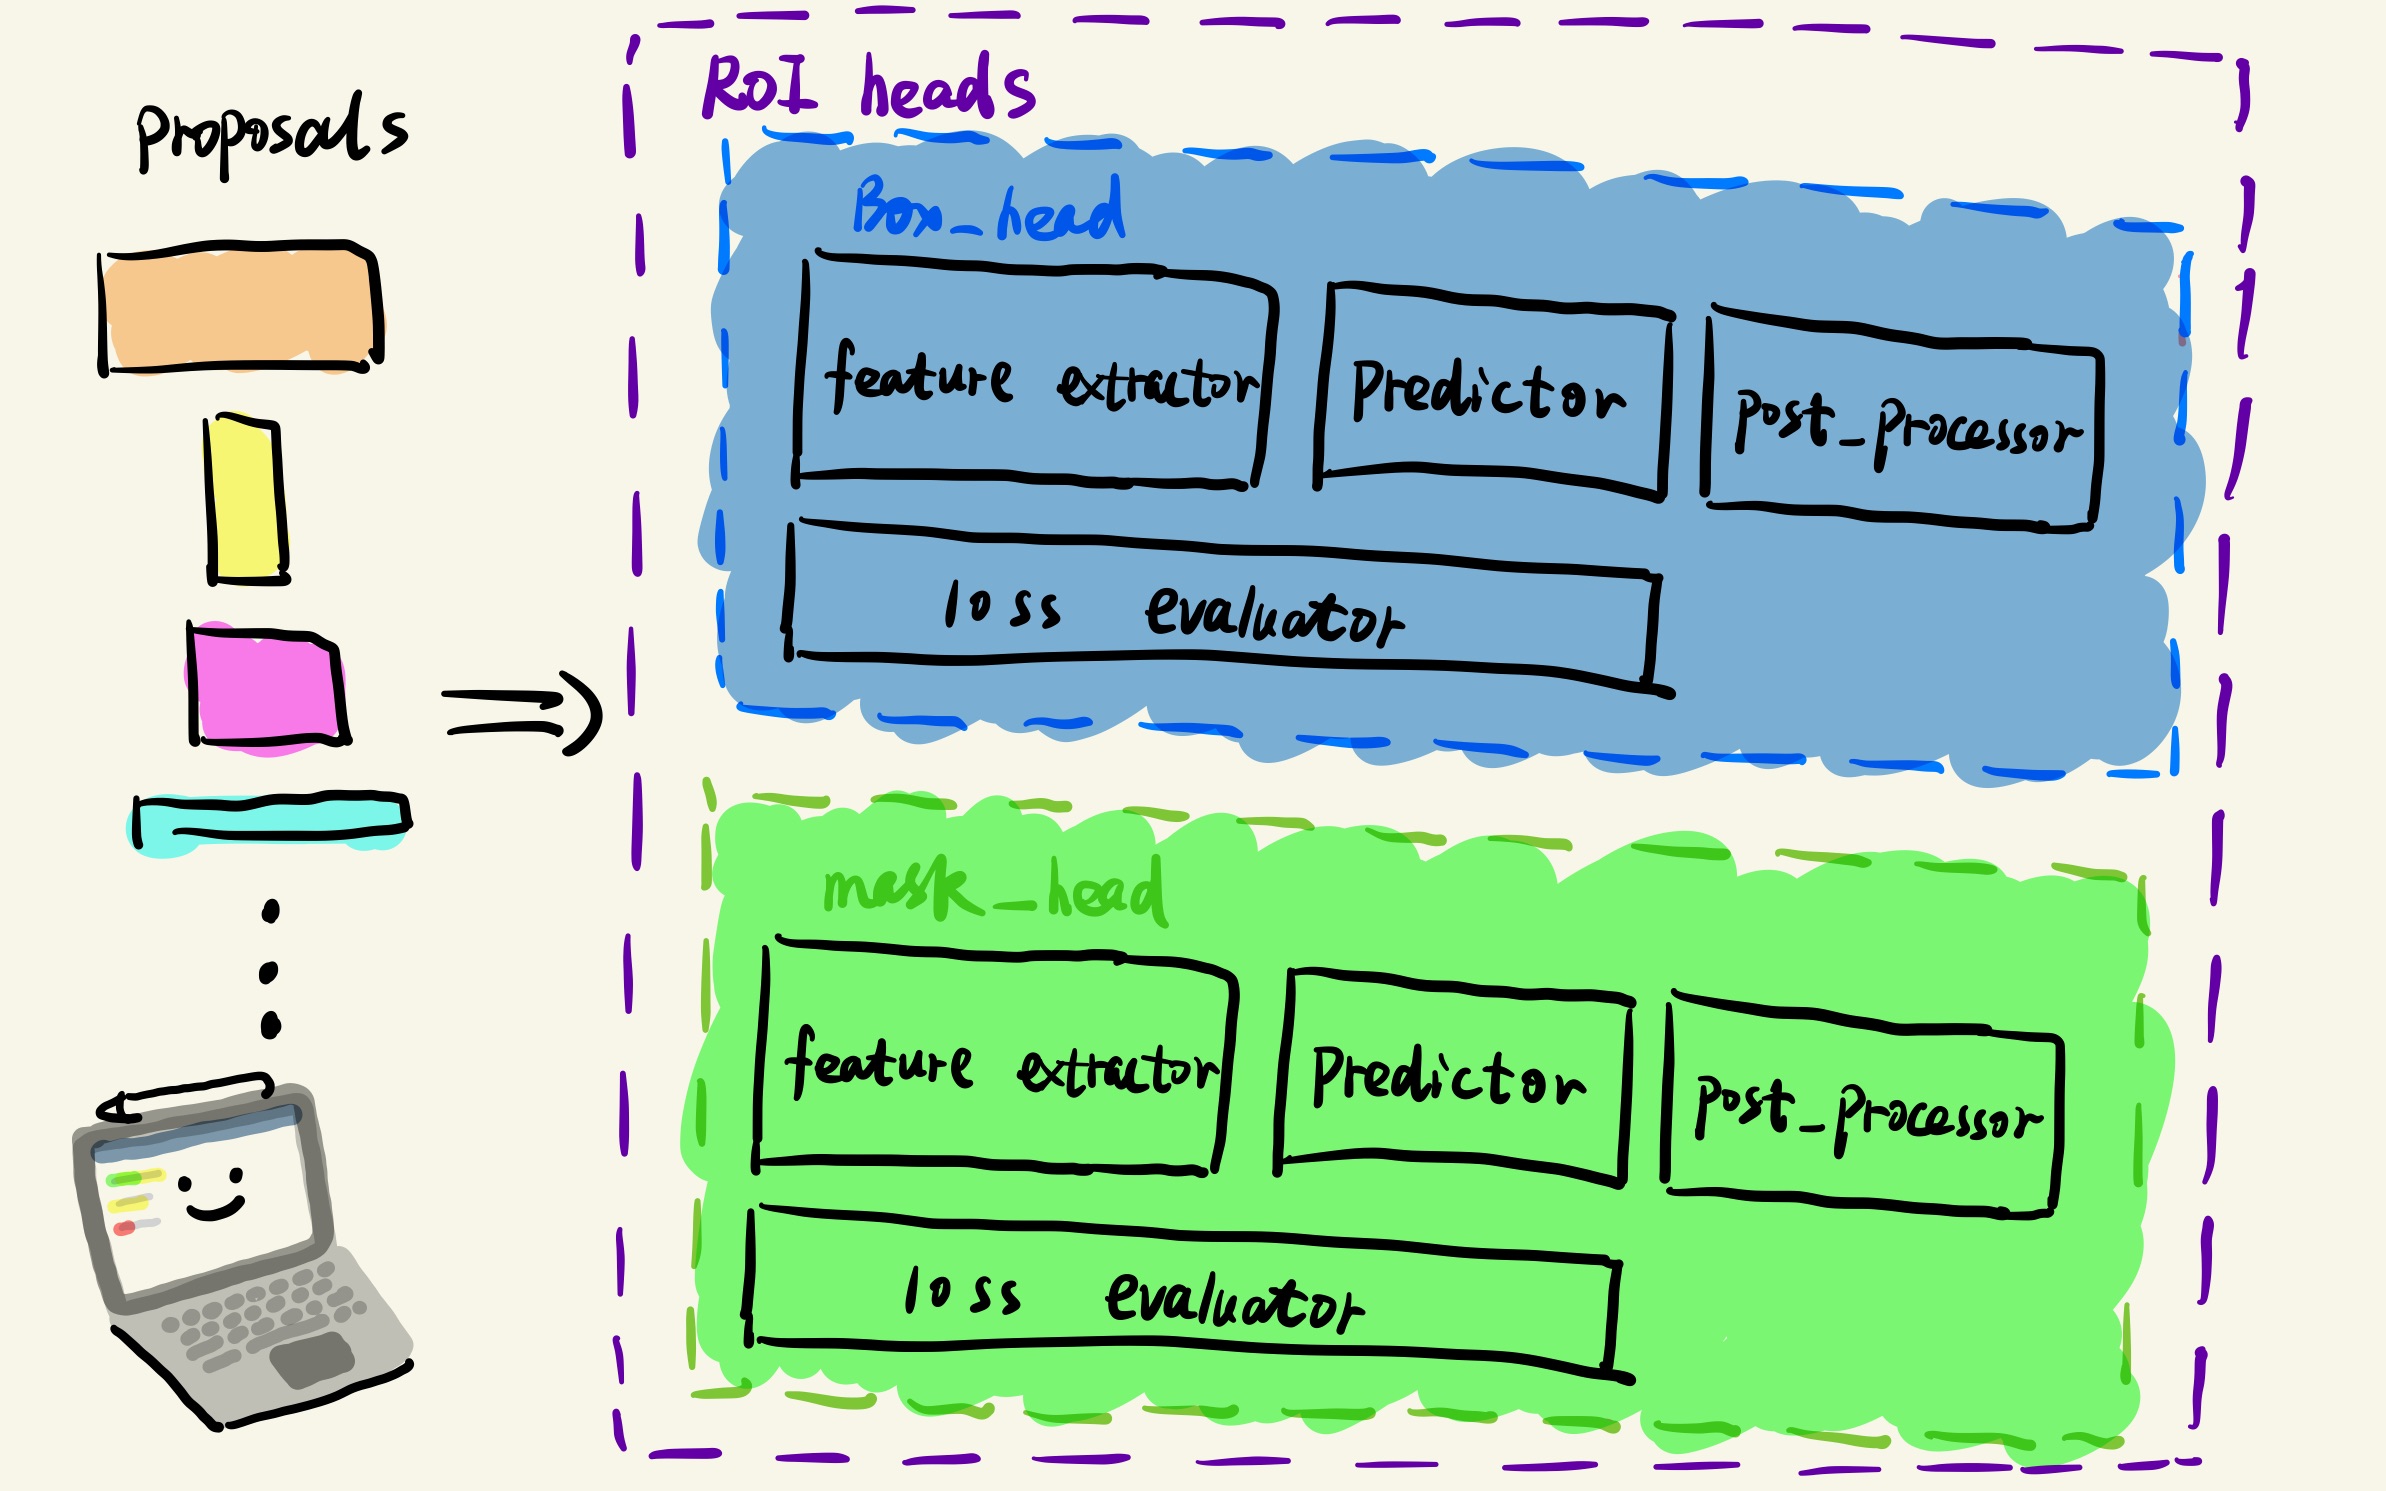 proposals
RoI heads
Box_head
feature extractor
Predictor
Post_processor
loss evaluator
mask_head
feature extractor
Predictor
Post_processor
loss evaluator